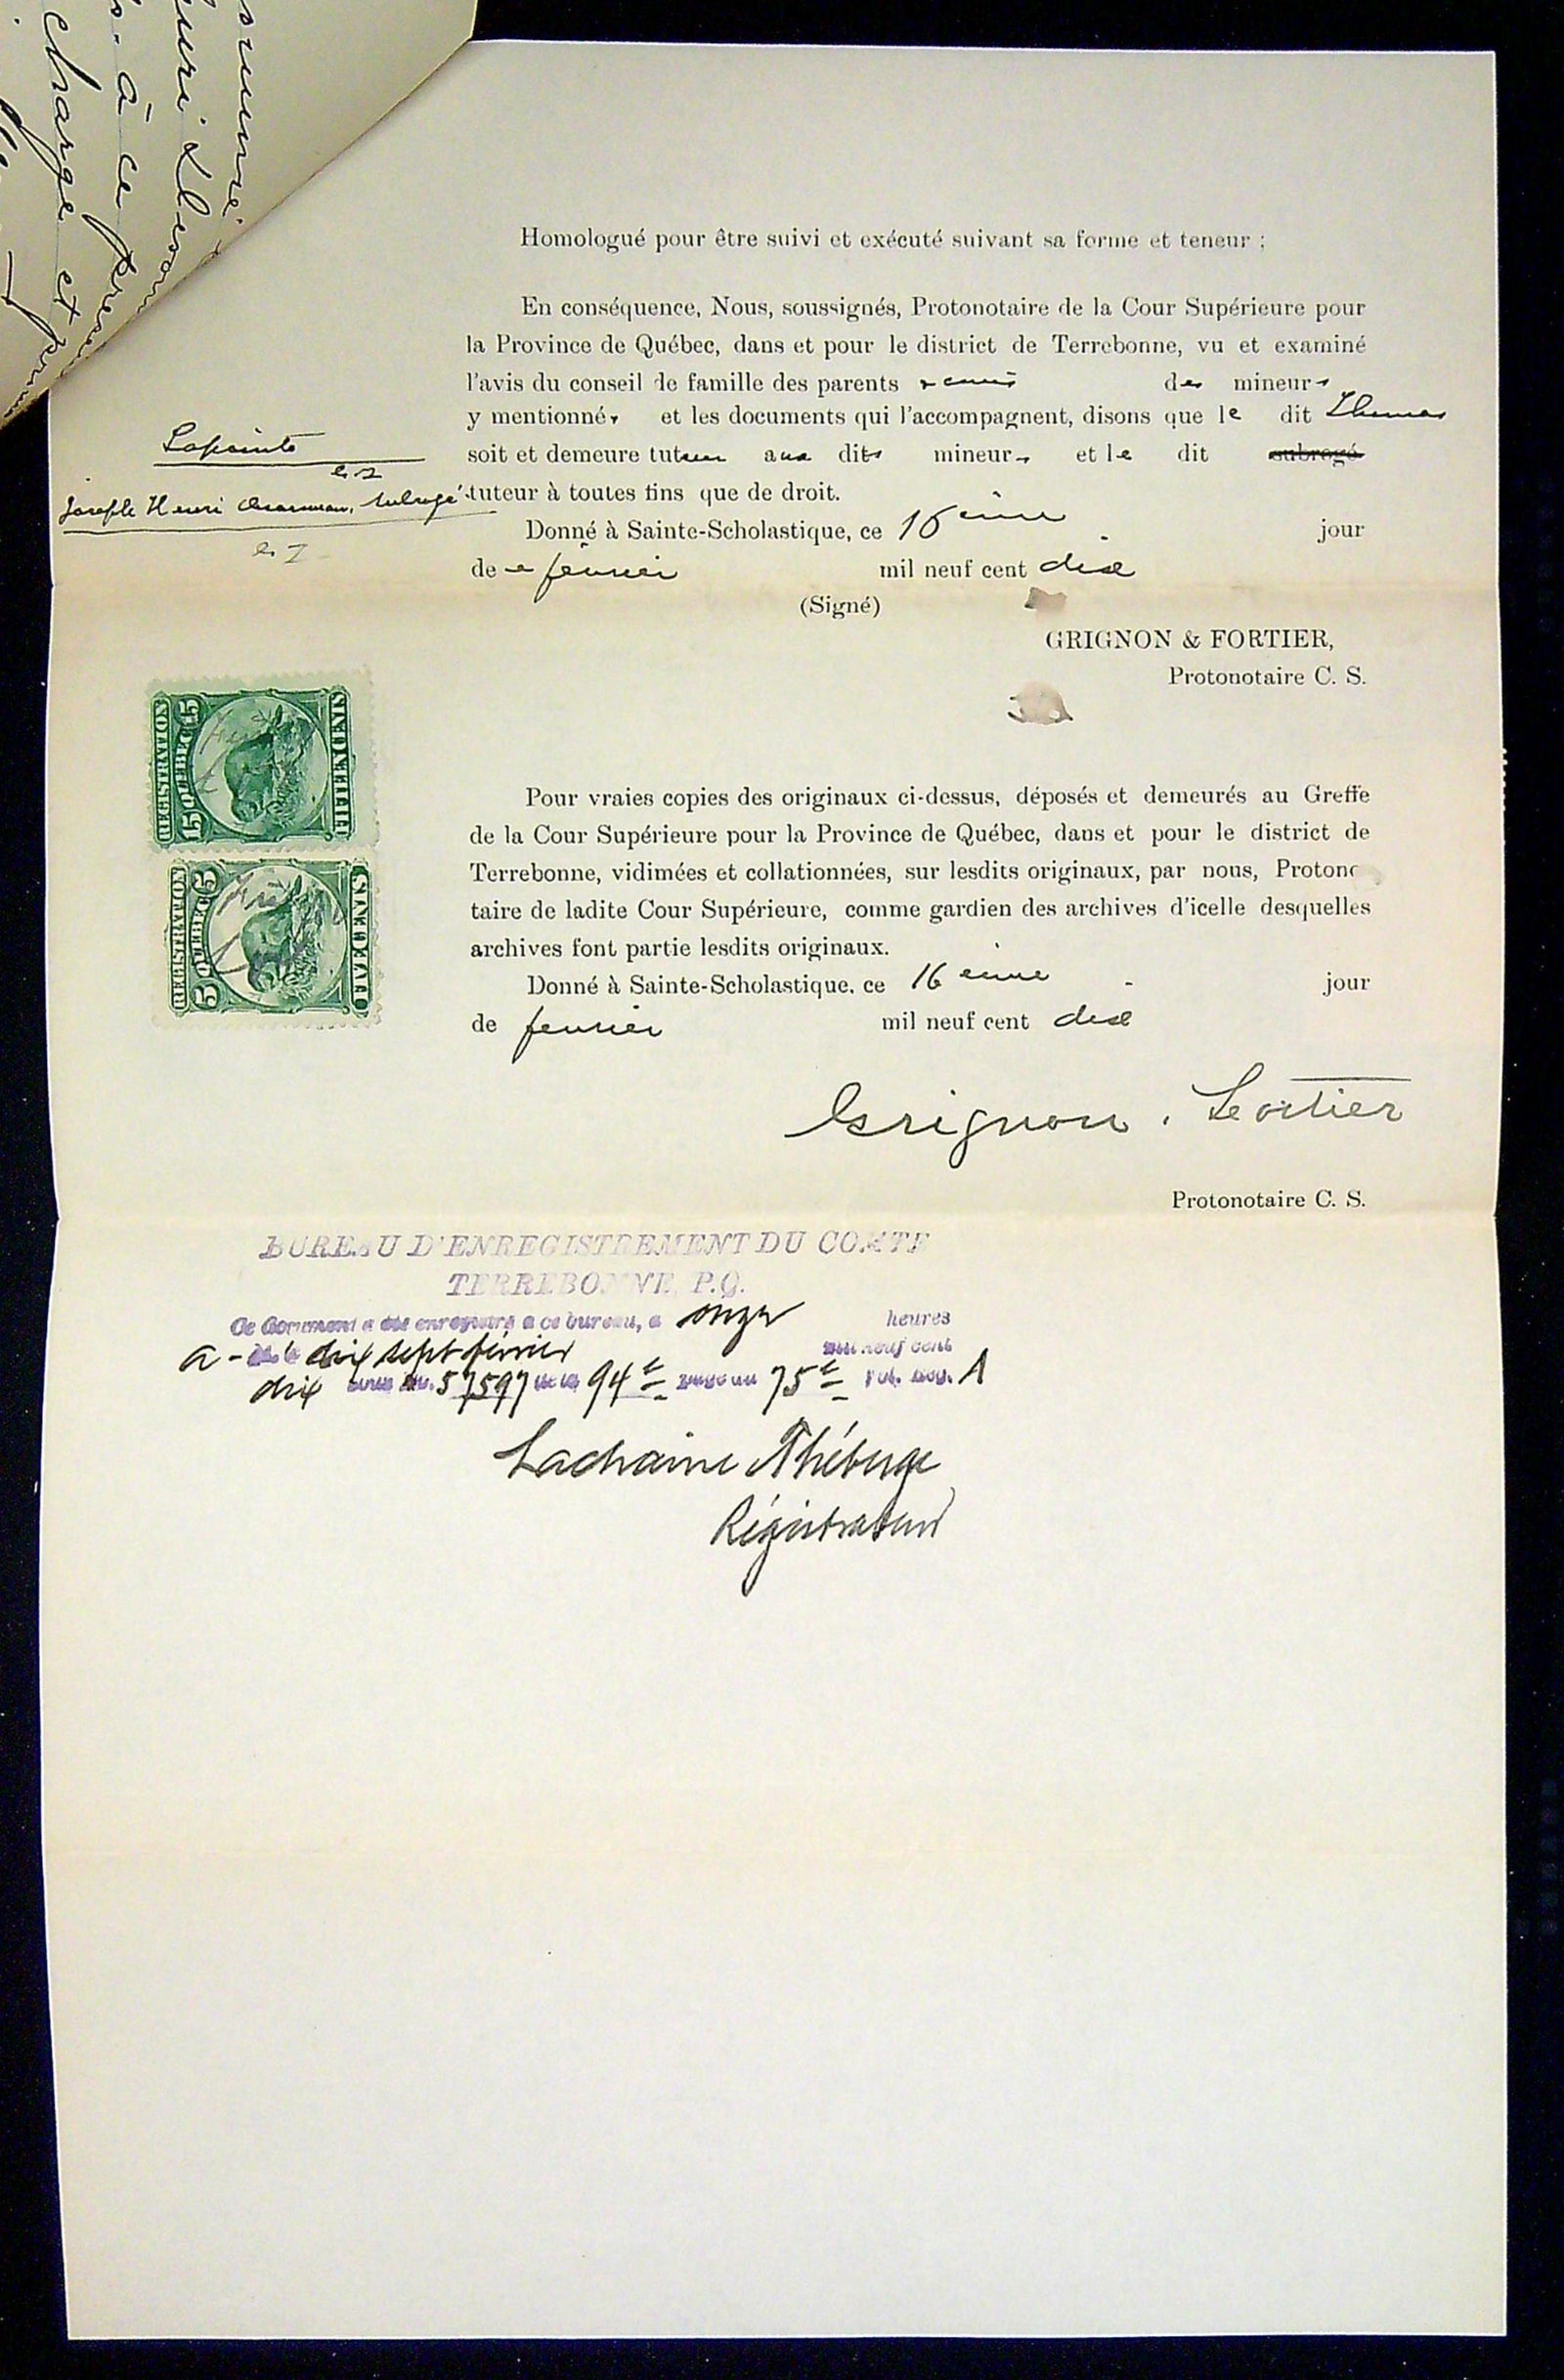 à ce
charge et
Homologué pour être suivi et exécuté suivant sa forme et teneur ;
En conséquence, Nous, soussignés, Protonotaire de la Cour Supérieure pour
la Province de Québec, dans et pour le district de Terrebonne, vu et examiné
l'avis du conseil de famille des parents et amis des mineurs
y mentionnés et les documents qui l'accompagnent, disons que le dit Thomas
Lapointe
soit et demeure tuteur aux dits mineurs et le dit subrogé
Joseph Henri subrogé
tuteur à toutes fins que de droit.
Donné à Sainte-Scholastique, ce 16 ième jour
de fevrier mil neuf cent dix
(Signé)
GRIGNON & FORTIER,
Protonotaire C. S.
REGISTRATION
15 QUEBEC 15
FIFTEEN CENTS
REGISTRATION
5 QUEBEC 5
FIVE CENTS
Pour vraies copies des originaux ci-dessus, déposés et demeurés au Greffe
de la Cour Supérieure pour la Province de Québec, dans et pour le district de
Terrebonne, vidimées et collationnées, sur lesdits originaux, par nous, Protono
taire de ladite Cour Supérieure, comme gardien des archives d'icelle desquelles
archives font partie lesdits originaux.
Donné à Sainte-Scholastique, ce 16 ième jour
de fevrier mil neuf cent dix
Grignon . Fortier
Protonotaire C. S.
BUREAU D'ENREGISTREMENT DU COMTE
TERREBONNE, P.Q.
Ce document a été enregistré a ce bureau, a onze heures
a - dix sept février mil neuf cent
dix sous No. 57597 94e page du 75e Vol. Reg. A
Lachaine Théberge
Régistrateur